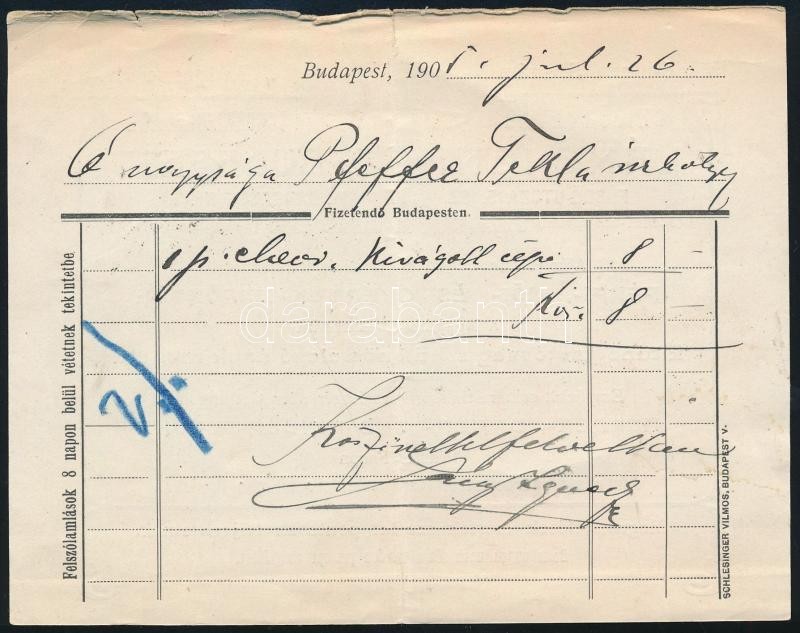 Budapest, 1905. jul. 26.
Ő nagysága Pfeffer Tekla úrhölgy
Fizetendő Budapesten.
1 p. chevr. Kivágott cipő 8 –
Kor. 8 –
Köszönettel felvettem
Ignácz
Felszólamlások 8 napon belül vétetnek tekintetbe
SCHLESINGER VILMOS, BUDAPEST V.
darabanth